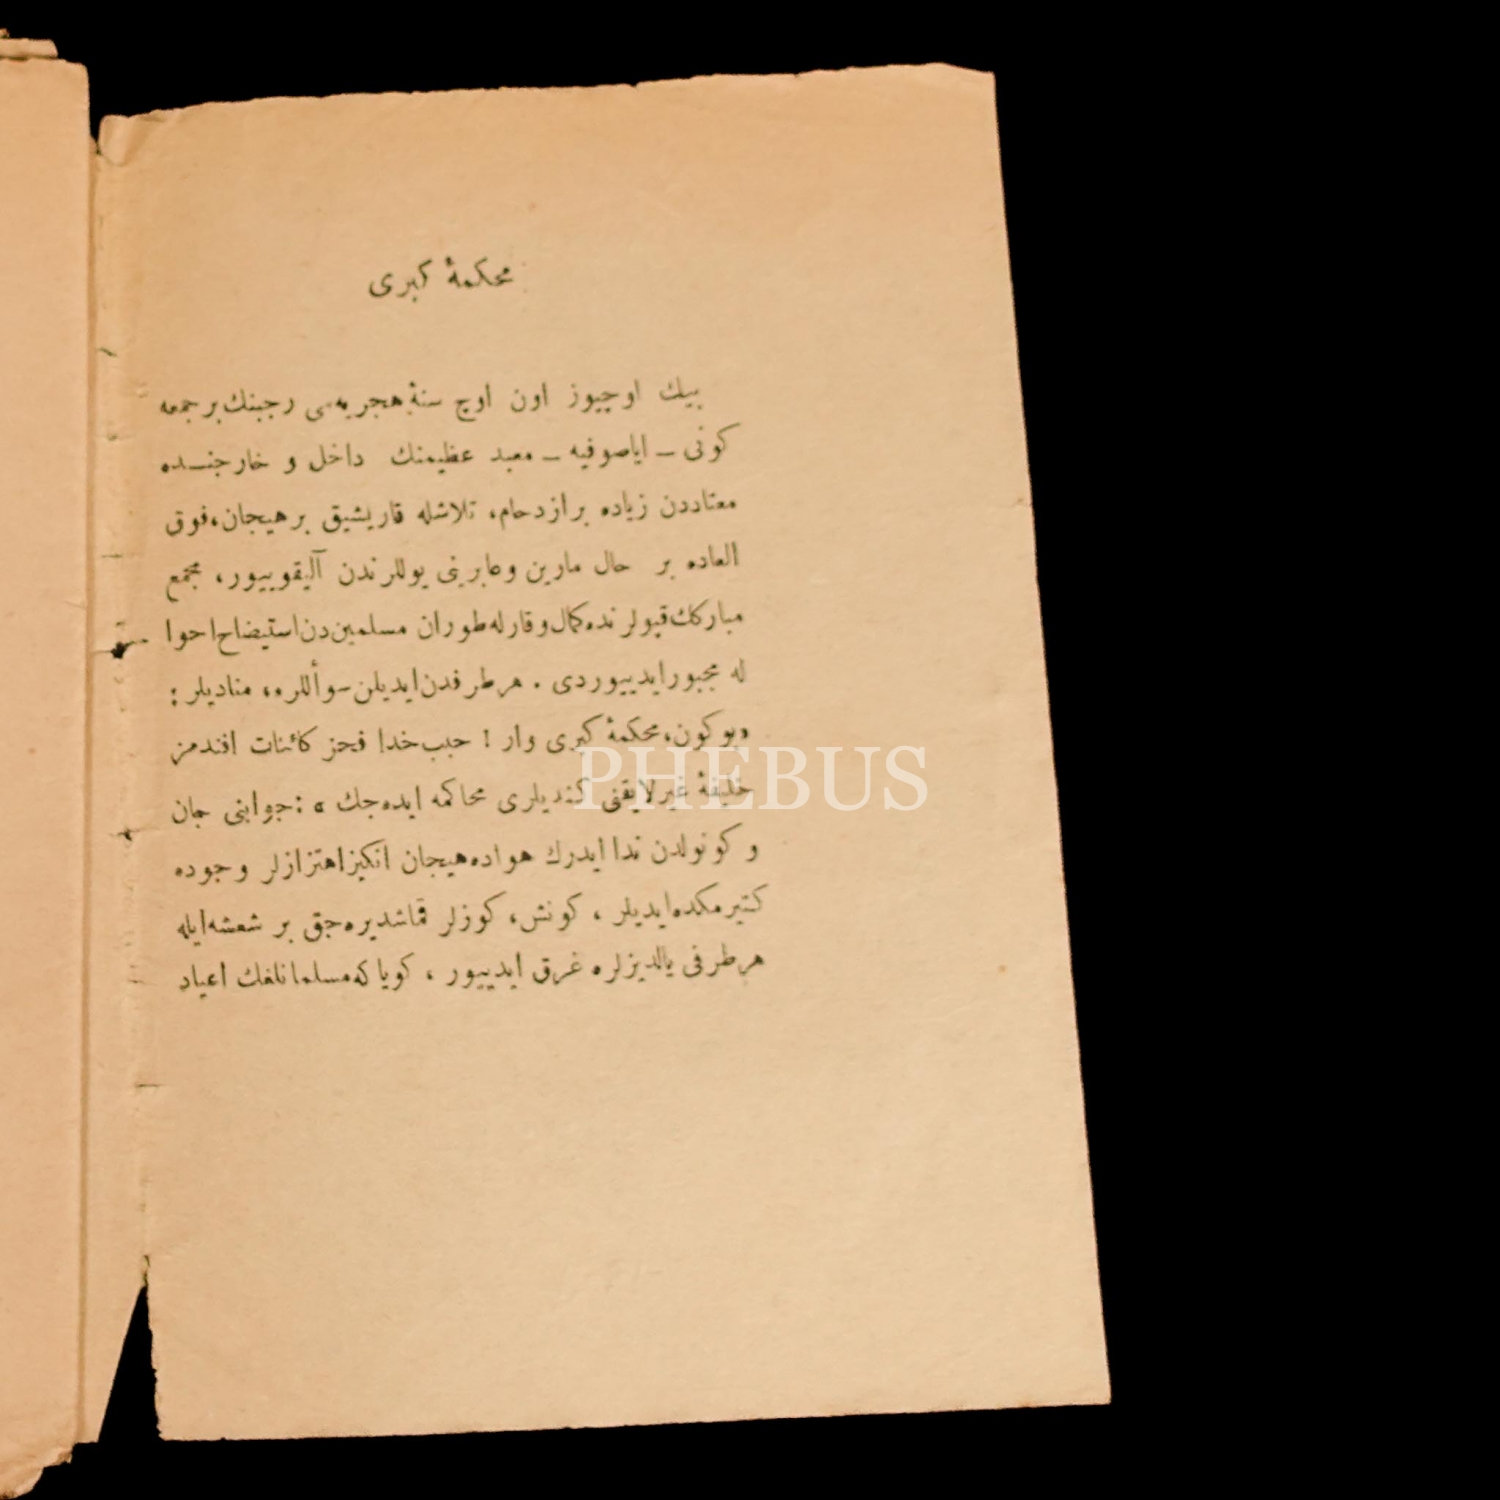 محكمهٔ كبرى
بيك اوچيوز اون اوچ سنهٔ هجريه‌سى رجبنك بر جمعه
كونى ـ اياصوفيه ـ معبد عظيمنك داخل و خارجنده
معتاددن زياده بر ازدحام، تلاشله قاريشيق بر هيجان، فوق
العاده بر حال مارين وعابرينى يوللرندن آليقويييور، مجمع
مباركك قپولرنده كمال وقارله طوران مسلمين‌دن استيضاح احوا
له مجبور ايدييوردى. هر طرفدن ايديلن سوأللره، مناديلر:
«بوكون، محكمهٔ كبرى وار! حبيب خدا فخر كائنات افندمز
خليفهٔ غير لايقنى كنديلرى محاكمه ايده‌جك»: جوابنى جان
و كوكولدن ندا ايدرك هواده هيجان انكيز اهتزازلر وجوده
كتيرمكده ايديلر، كونش، كوزلر قماشديره‌جق بر شعشعه ايله
هر طرفى يالديزلره غرق ايدييور، كويا كه مسلمانلغك اعياد
PHEBUS